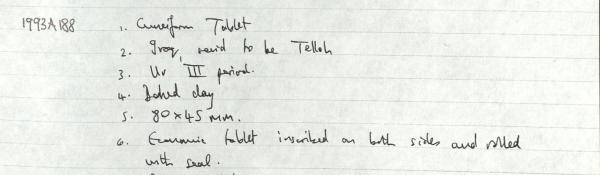 1993A188 1. Cuneiform Tablet
2. Iraq, said to be Telloh
3. Ur III period.
4. Baked clay
5. 80 x 45 mm.
6. Economic tablet inscribed on both sides and rolled
with seal.